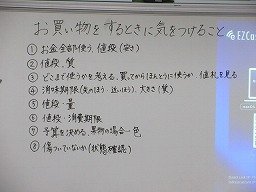 お買い物をするときに気をつけること
① お金全部使う、値段(安さ)
② 値段、質
③ どこまで使うかを考える、買てから(ほんとうに使うか)値札を見る
④ 消味期限(先のほう、近いほう)、大きさ(質)
⑤ 値段・量
⑥ 値段・消費期限
⑦ 予算を決める、果物の場合→色
⑧ 傷ついていないか(状態確認)
EZCas